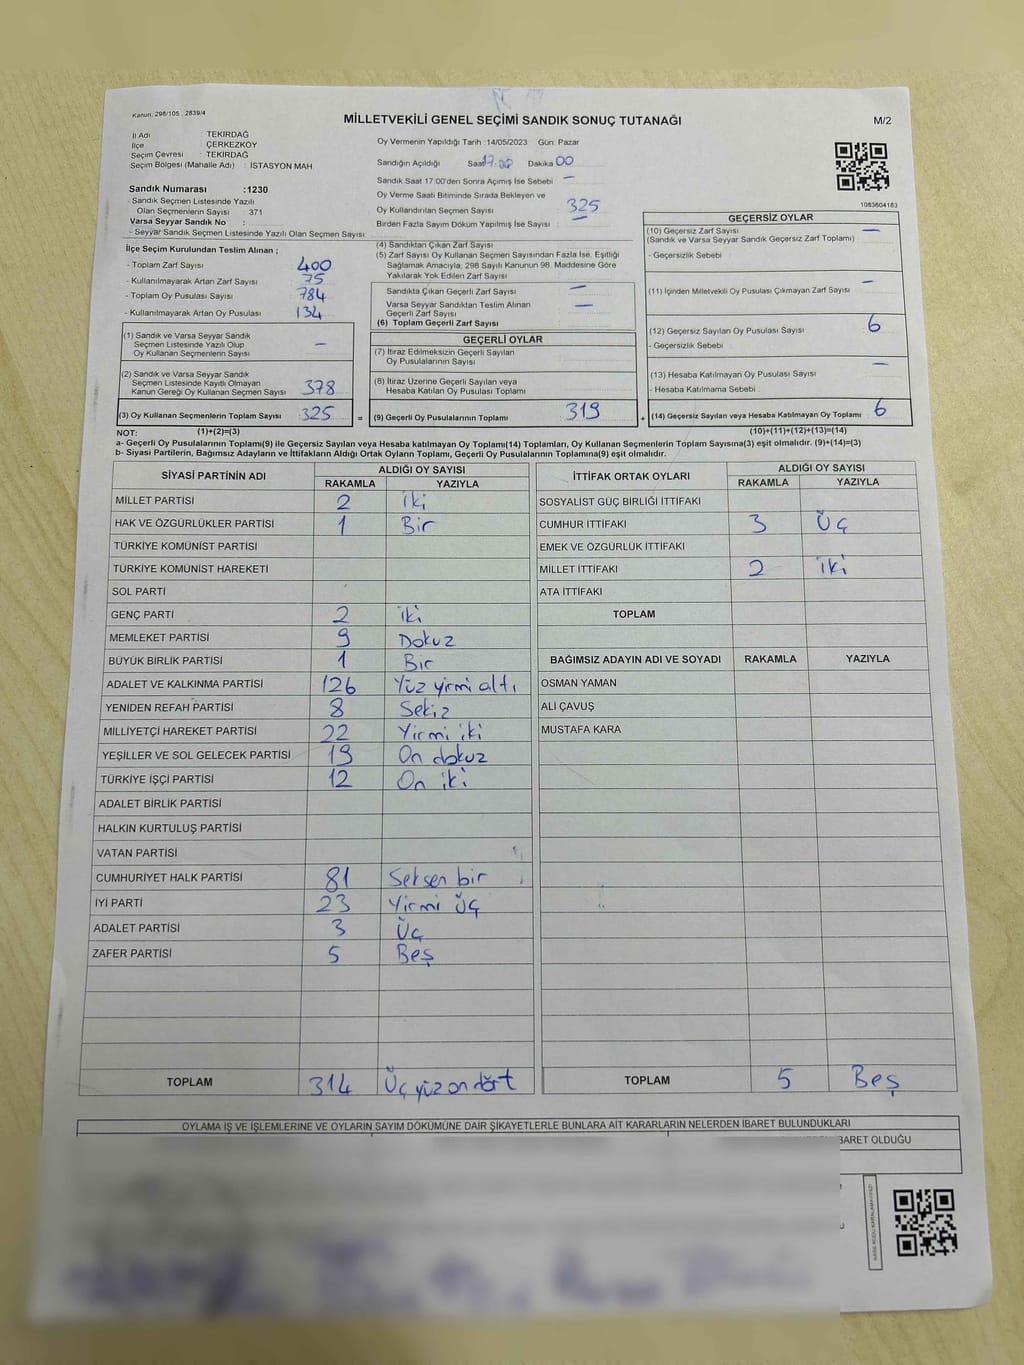 Kanun: 298/105 , 2839/4
MİLLETVEKİLİ GENEL SEÇİMİ SANDIK SONUÇ TUTANAĞI
M/2
İl Adı : TEKİRDAĞ
İlçe : ÇERKEZKÖY
Seçim Çevresi : TEKİRDAĞ
Seçim Bölgesi (Mahalle Adı) : İSTASYON MAH
Sandık Numarası :1230
- Sandık Seçmen Listesinde Yazılı
Olan Seçmenlerin Sayısı 371
Varsa Seyyar Sandık No :
- Seyyar Sandık Seçmen Listesinde Yazılı Olan Seçmen Sayısı:
Oy Vermenin Yapıldığı Tarih :14/05/2023 Gün: Pazar
Sandığın Açıldığı Saat 17.00 Dakika 00
Sandık Saat 17:00'den Sonra Açımış İse Sebebi —
Oy Verme Saati Bitiminde Sırada Bekleyen ve
Oy Kullandırılan Seçmen Sayısı 325
Birden Fazla Sayım Döküm Yapılmış İse Sayısı : —
1083604183
İlçe Seçim Kurulundan Teslim Alınan ;
- Toplam Zarf Sayısı 400
- Kullanılmayarak Artan Zarf Sayısı 75
- Toplam Oy Pusulası Sayısı 784
- Kullanılmayarak Artan Oy Pusulası 134
(1) Sandık ve Varsa Seyyar Sandık
Seçmen Listesinde Yazılı Olup
Oy Kullanan Seçmenlerin Sayısı —
(2) Sandık ve Varsa Seyyar Sandık
Seçmen Listesinde Kayıtlı Olmayan
Kanun Gereği Oy Kullanan Seçmen Sayısı 378
(3) Oy Kullanan Seçmenlerin Toplam Sayısı 325 =
(4) Sandıktan Çıkan Zarf Sayısı
(5) Zarf Sayısı Oy Kullanan Seçmen Sayısından Fazla İse, Eşitliği
Sağlamak Amacıyla, 298 Sayılı Kanunun 98. Maddesine Göre
Yakılarak Yok Edilen Zarf Sayısı
Sandıkta Çıkan Geçerli Zarf Sayısı —
Varsa Seyyar Sandıktan Teslim Alınan
Geçerli Zarf Sayısı —
(6) Toplam Geçerli Zarf Sayısı
GEÇERLİ OYLAR
(7) İtiraz Edilmeksizin Geçerli Sayılan
Oy Pusulalarının Sayısı
(8) İtiraz Üzerine Geçerli Sayılan veya
Hesaba Katılan Oy Pusulası Toplamı
(9) Geçerli Oy Pusulalarının Toplamı 319 +
GEÇERSİZ OYLAR
(10) Geçersiz Zarf Sayısı —
(Sandık ve Varsa Seyyar Sandık Geçersiz Zarf Toplamı)
- Geçersizlik Sebebi
(11) İçinden Milletvekili Oy Pusulası Çıkmayan Zarf Sayısı —
(12) Geçersiz Sayılan Oy Pusulası Sayısı 6
- Geçersizlik Sebebi
(13) Hesaba Katılmayan Oy Pusulası Sayısı —
- Hesaba Katılmama Sebebi :
(14) Geçersiz Sayılan veya Hesaba Katılmayan Oy Toplamı 6
NOT: (1)+(2)=(3) (10)+(11)+(12)+(13)=(14)
a- Geçerli Oy Pusulalarının Toplamı(9) ile Geçersiz Sayılan veya Hesaba katılmayan Oy Toplamı(14) Toplamları, Oy Kullanan Seçmenlerin Toplam Sayısına(3) eşit olmalıdır. (9)+(14)=(3)
b- Siyasi Partilerin, Bağımsız Adayların ve İttifakların Aldığı Ortak Oyların Toplamı, Geçerli Oy Pusulalarının Toplamına(9) eşit olmalıdır.
SİYASİ PARTİNİN ADI ALDIĞI OY SAYISI
RAKAMLA YAZIYLA
MİLLET PARTİSİ 2 iki
HAK VE ÖZGÜRLÜKLER PARTİSİ 1 Bir
TÜRKİYE KOMÜNİST PARTİSİ
TÜRKİYE KOMÜNİST HAREKETİ
SOL PARTİ
GENÇ PARTİ 2 iki
MEMLEKET PARTİSİ 9 Dokuz
BÜYÜK BİRLİK PARTİSİ 1 Bir
ADALET VE KALKINMA PARTİSİ 126 Yüz yirmi altı
YENİDEN REFAH PARTİSİ 8 Sekiz
MİLLİYETÇİ HAREKET PARTİSİ 22 Yirmi iki
YEŞİLLER VE SOL GELECEK PARTİSİ 19 On dokuz
TÜRKİYE İŞÇİ PARTİSİ 12 On iki
ADALET BİRLİK PARTİSİ
HALKIN KURTULUŞ PARTİSİ
VATAN PARTİSİ
CUMHURİYET HALK PARTİSİ 81 Seksen bir
İYİ PARTİ 23 Yirmi Üç
ADALET PARTİSİ 3 Üç
ZAFER PARTİSİ 5 Beş
TOPLAM 314 Üç yüz on dört
İTTİFAK ORTAK OYLARI ALDIĞI OY SAYISI
RAKAMLA YAZIYLA
SOSYALİST GÜÇ BİRLİĞİ İTTİFAKI
CUMHUR İTTİFAKI 3 Üç
EMEK VE ÖZGÜRLÜK İTTİFAKI
MİLLET İTTİFAKI 2 iki
ATA İTTİFAKI
TOPLAM
BAĞIMSIZ ADAYIN ADI VE SOYADI RAKAMLA YAZIYLA
OSMAN YAMAN
ALİ ÇAVUŞ
MUSTAFA KARA
TOPLAM 5 Beş
OYLAMA İŞ VE İŞLEMLERİNE VE OYLARIN SAYIM DÖKÜMÜNE DAİR ŞİKAYETLERLE BUNLARA AİT KARARLARIN NELERDEN İBARET BULUNDUKLARI
BARET OLDUĞU